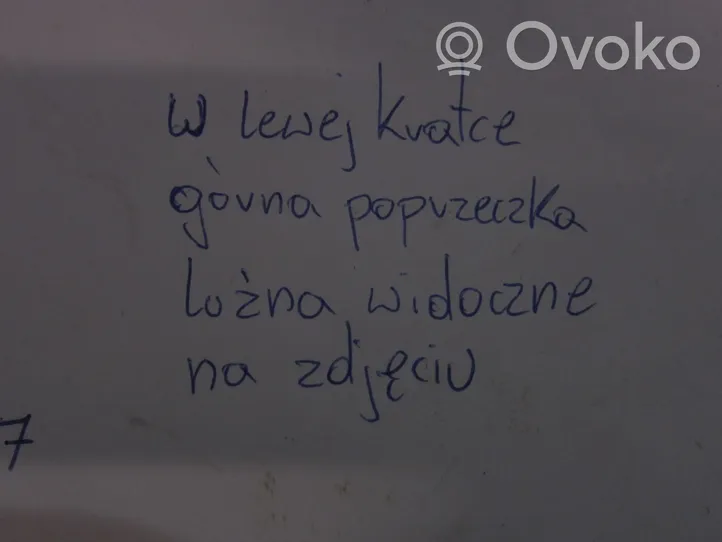 Ovoko
W lewej kratce
góvna poprzeczka
luźna widoczne
na zdjęciu
7